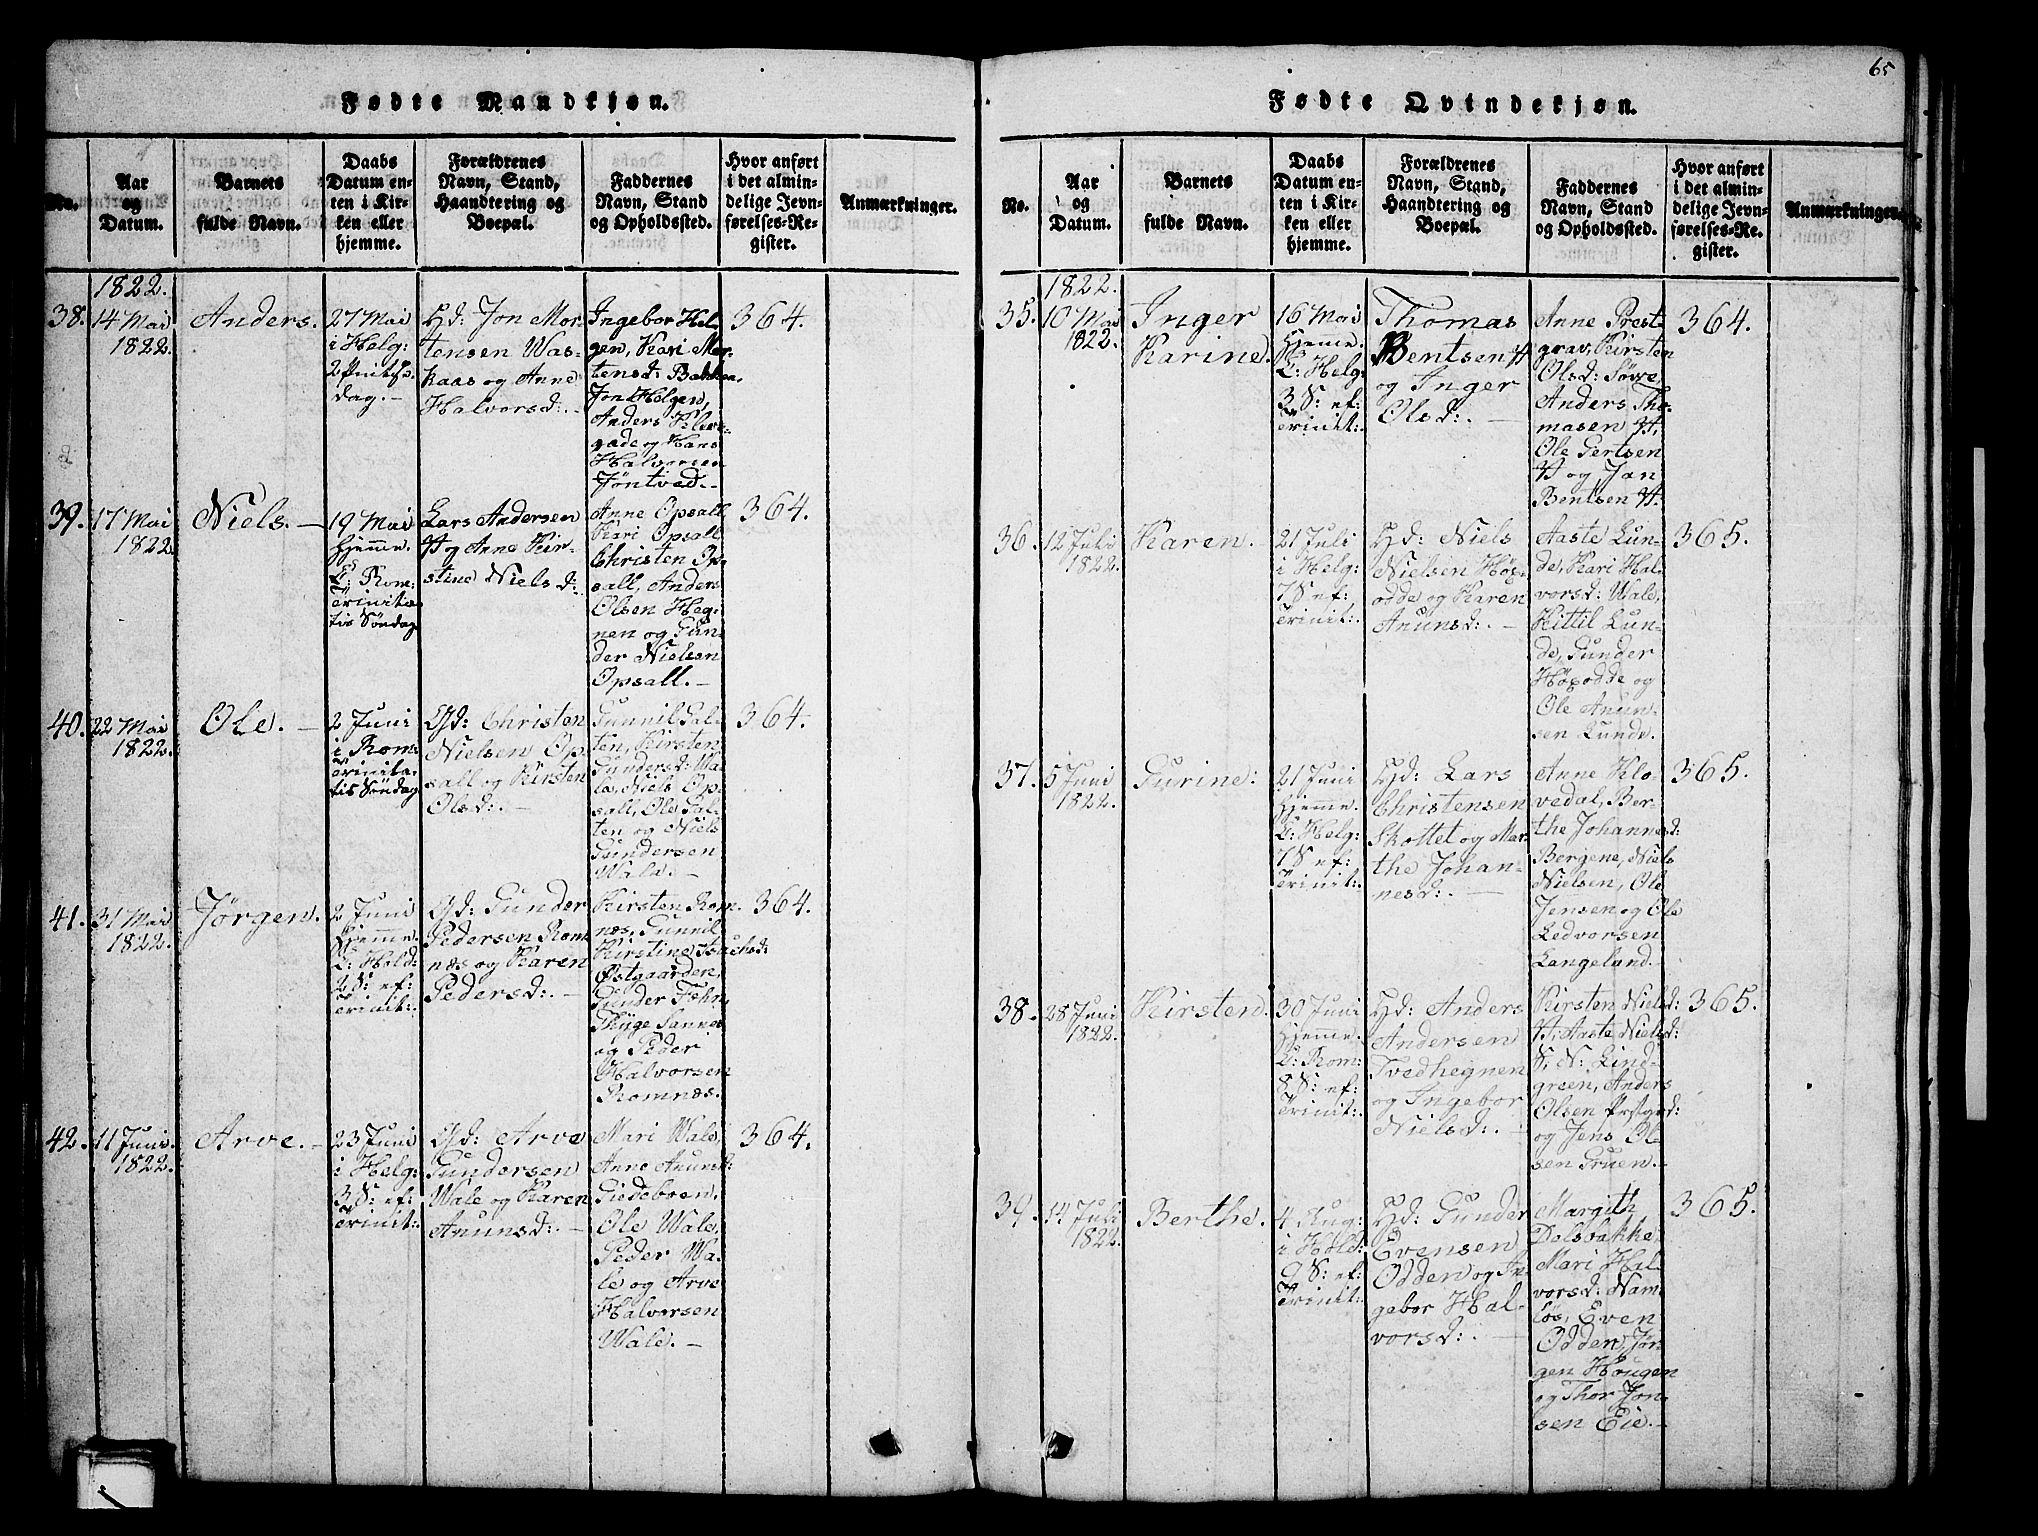 65
Fødte Mandkjøn.
No.
Aar
og
Datum.
Barnets
fulde Navn.
Daabs
Datum en-
ten i Kir-
ken eller
hjemme.
Forældrenes
Navn, Stand,
Haandtering og
Boepæl.
Faddernes
Navn, Stand
og Opholdssted.
Hvor anført
i det almin-
delige Jevn-
førelses-Re-
gister.
Anmærkninger.
1822.
38.
14 Mai
1822.
Anders.
27 Mai
i Helg:
2 Pintse
dag.-
Gd: Jon Mor-
tensen Was-
kaas og Anne
Halvorsd:.-
Ingebor Hel-
gen, Kari Mor-
tensd: Bakken,
Jon Helgen,
Anders Klev-
gade og Hans
Halvorsen
Jøntved.-
364.
39.
17 Mai
1822.
Niels.-
19 Mai
Hjemme.
E: Rom:
Trinita-
tis Søndag
Lars Andersen
H og Anne Kir-
stine Nielsd:
Anne Opsall,
Kari Opsall
Christen Op-
sall, Anders
Olsen Heg-
nen og Gun-
der Nielsen
Opsall.-
364.
40.
22 Mai
1822.
Ole.-
2 Juni
i Rom:
Trinita-
tis Søndag
Gd: Christen
Nielsen Op-
sall og Kirsten
Olsd:.-
Gunnil Sal-
ten, Kirsten
Gundersd: Wa-
le, Niels Op-
sall, Ole Sal-
ten og Niels
Gundersen
Wale.-
364.
41.
31 Mai
1822.
Jørgen.
2 Juni
Hjemme.
E: Hold:
2 S: ef:
Trinit:.
Gd: Gunder
Pedersen Rom
næs og Karen
Pedersd:.-
Kirsten Rom
næs, Gunnil
Kirstine Isachsd:
Østgaarden,
Gunder Fehn
Thyge Sannes
og Peder
Halvorsen
Romnæs.
364.
42.
11 Juni.
1822.
Arve.-
23 Juni
i Helg:
3 S: ef:
Trinit:.
Gd: Arve
Gundersen
Wale og Karen
Anunsd:.-
Mari Wale,
Anne Anunsd:
Giedeboen,
Ole Wale,
Peder Wa-
le og Arve
Halvorsen
Wale.-
364.
Fødte Qvindekjøn.
No.
Aar
og
Datum.
Barnets
fulde Navn.
Daabs
Datum en-
ten i Kir-
ken eller
hjemme.
Forældrenes
Navn, Stand,
Haandtering og
Boepæl.
Faddernes
Navn, Stand
og Opholdssted.
Hvor anført
i det almin-
delige Jevn-
førelses-Re-
gister.
Anmærkninger.
1822.
35.
10 Mai
1822.
Inger
Karine.
16 Mai
Hjeme.
E: Helg:
3 S: ef:
Trinit:.
Thomas
Bentsen H
og Inger
Olsd:.-
Anne Prest-
grav, Kirsten
Olsd: Søve,
Anders Tho-
masen H,
Ole Gertsen
H og Jan
Bentsen H.
364.
36.
12 Juli
1822.
Karen.
21 Juli
i Helg:
7 S ef:
Trinit:.
Hd: Niels
Nielsen Høg-
odde og Karen
Anunsd:.-
Aaste Lun-
de, Kari Hal-
vorsd: Wale,
Kittil Lun-
de, Gunder
Høgodde og
Ole Anun-
sen Lunde.
365.
37.
5 Juni
1822.
Gurine:
21 Juni
Hjemme.
E: Helg:
7 S ef:
Trinit:.
Hd: Lars
Christensen
Skottet og Mar-
the Johan-
nesd:.-
Anne Klo-
vedal, Ber-
the Johannesd:
Bergene, Niels
Nielsen, Ole
Jensen og Ole
Ledvorsen
Langeland.-
365.
38.
28 Juni
1822.
Kirsten.
30 Juni
Hjemme.
E: Rom:
8 S: ef:
Trinit:.
Hd: Anders
Andersen
Tvedhegnen
og Ingebor
Nielsd:.-
Kirsten Nielsd:
H, Aaste Nielsd:
N, N: Lind-
green, Anders
Olsen Prstgrd:
og Jens Ole
sen Gruen.-
365.
39.
14 Juli
1822.
Berthe.
4 Aug:
i Hold:
9 S: ef:
Trinit:.
Hd: Gunder
Evensen
Odden og In-
gebor Hal-
vorsd:.-
Margith
Dolsbakke,
Mari Hal-
vorsd: Nam-
løs, Even
Odden, Jør-
gen Hougen
og Thor Jon-
sen Eie.-
365.